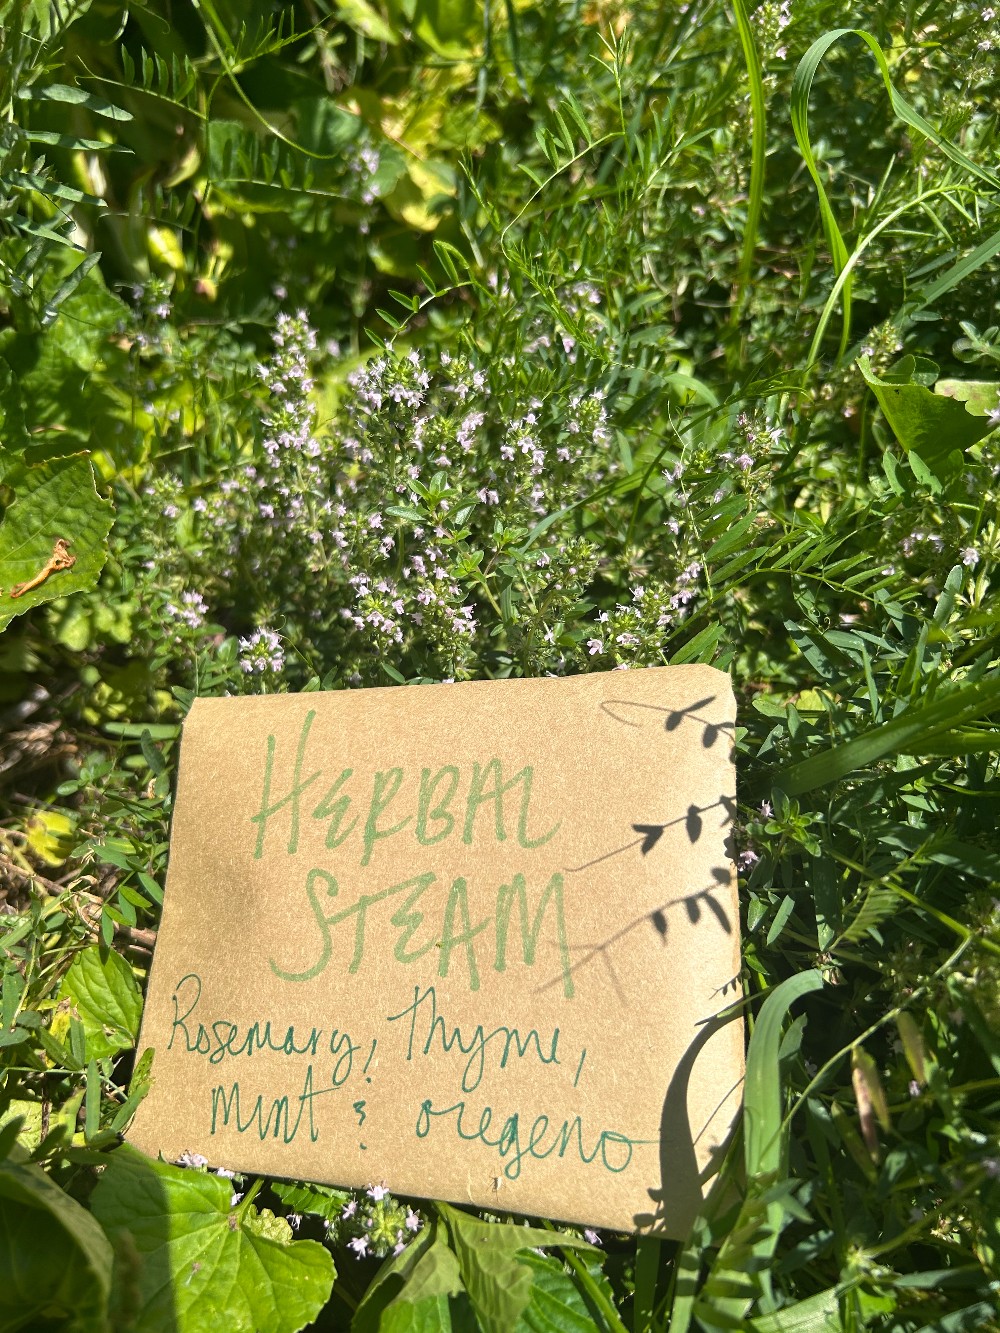 HERBAL
STEAM
Rosemary, Thyme,
Mint & oregeno